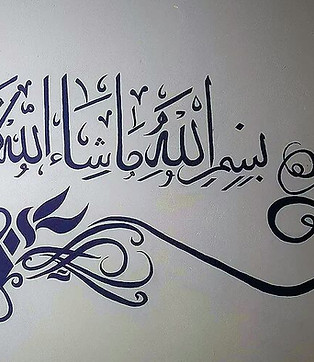 بِسْمِ اللَّهِ مَا شَاءَ اللَّهُ